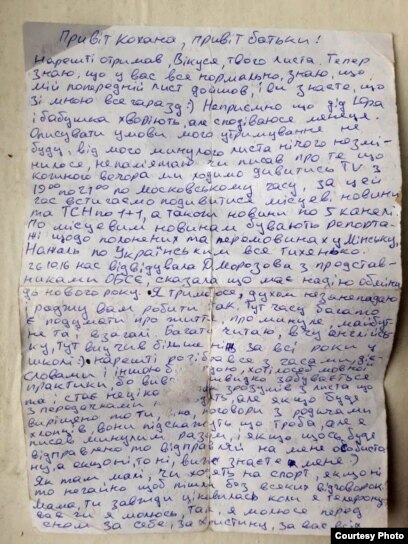 Привіт Кохана, привіт батьки!
Нарешті отримав, Вікуся, твого листа. Тепер
знаю, що у вас все нормально, знаю, що
мій попередній лист дойшов, і ви знаєте, що
зі мною все гаразд :) Неприємно що дід Юра
і бабушка хворіють, але сподіваюсь менеця.
Описувати умови мого утримування не
буду, від мого минулого листа нічого не змі-
нилося, не памятаю чи писав про те що
кожної вечора ми ходимо дивитись TV з
19⁰⁰ по 21⁰⁰ по московському часу, за цей
час встигаємо подивитися місцеві новини
та ТСН по 1+1, а також новини по 5 каналі
По місцевим новинам бувають репорта-
жі щодо полонених та перемовинах у Мінську,
Нажаль по Українським все тихенько.
26.10.16 нас відвідувала О.Морозова з представ-
никами ОБСЄ, сказала що має надію обміну
до нового року. Я тримаюсь, духом не занепадаю
і раджу вам робити так, тут часу багато
є подумати про життя, про минуле, майбут-
нє та і взагалі багато читаю, вчу англійсь-
ку, тут вивчив більше ніж за всі роки у
школі :) нарешті розібрався з часами, ді
словами і іншою, хотілося мовної
практики, бо швидко забувається
те і стає нецікаво зрозумів з листа що
з передачками але якщо буде
вирішено то ти поговори з родичами
хлопців, вони підскажуть що треба, але я
писав минулим разом, і якщо щось буде
відправлено то відправляй на мене обисто
ну, а якщо ні, то ні, ви ж знаєте мене :)
Як там малі, чи ходять на спорт, якщо ні
то негайно щоб пішли без всяких відговорок
Мама, ти завжди цікавилась коли я телефону-
вав чи я молюсь, так, я молюсь перед
сном за себе, за Христинку, за вас всіх
Courtesy Photo